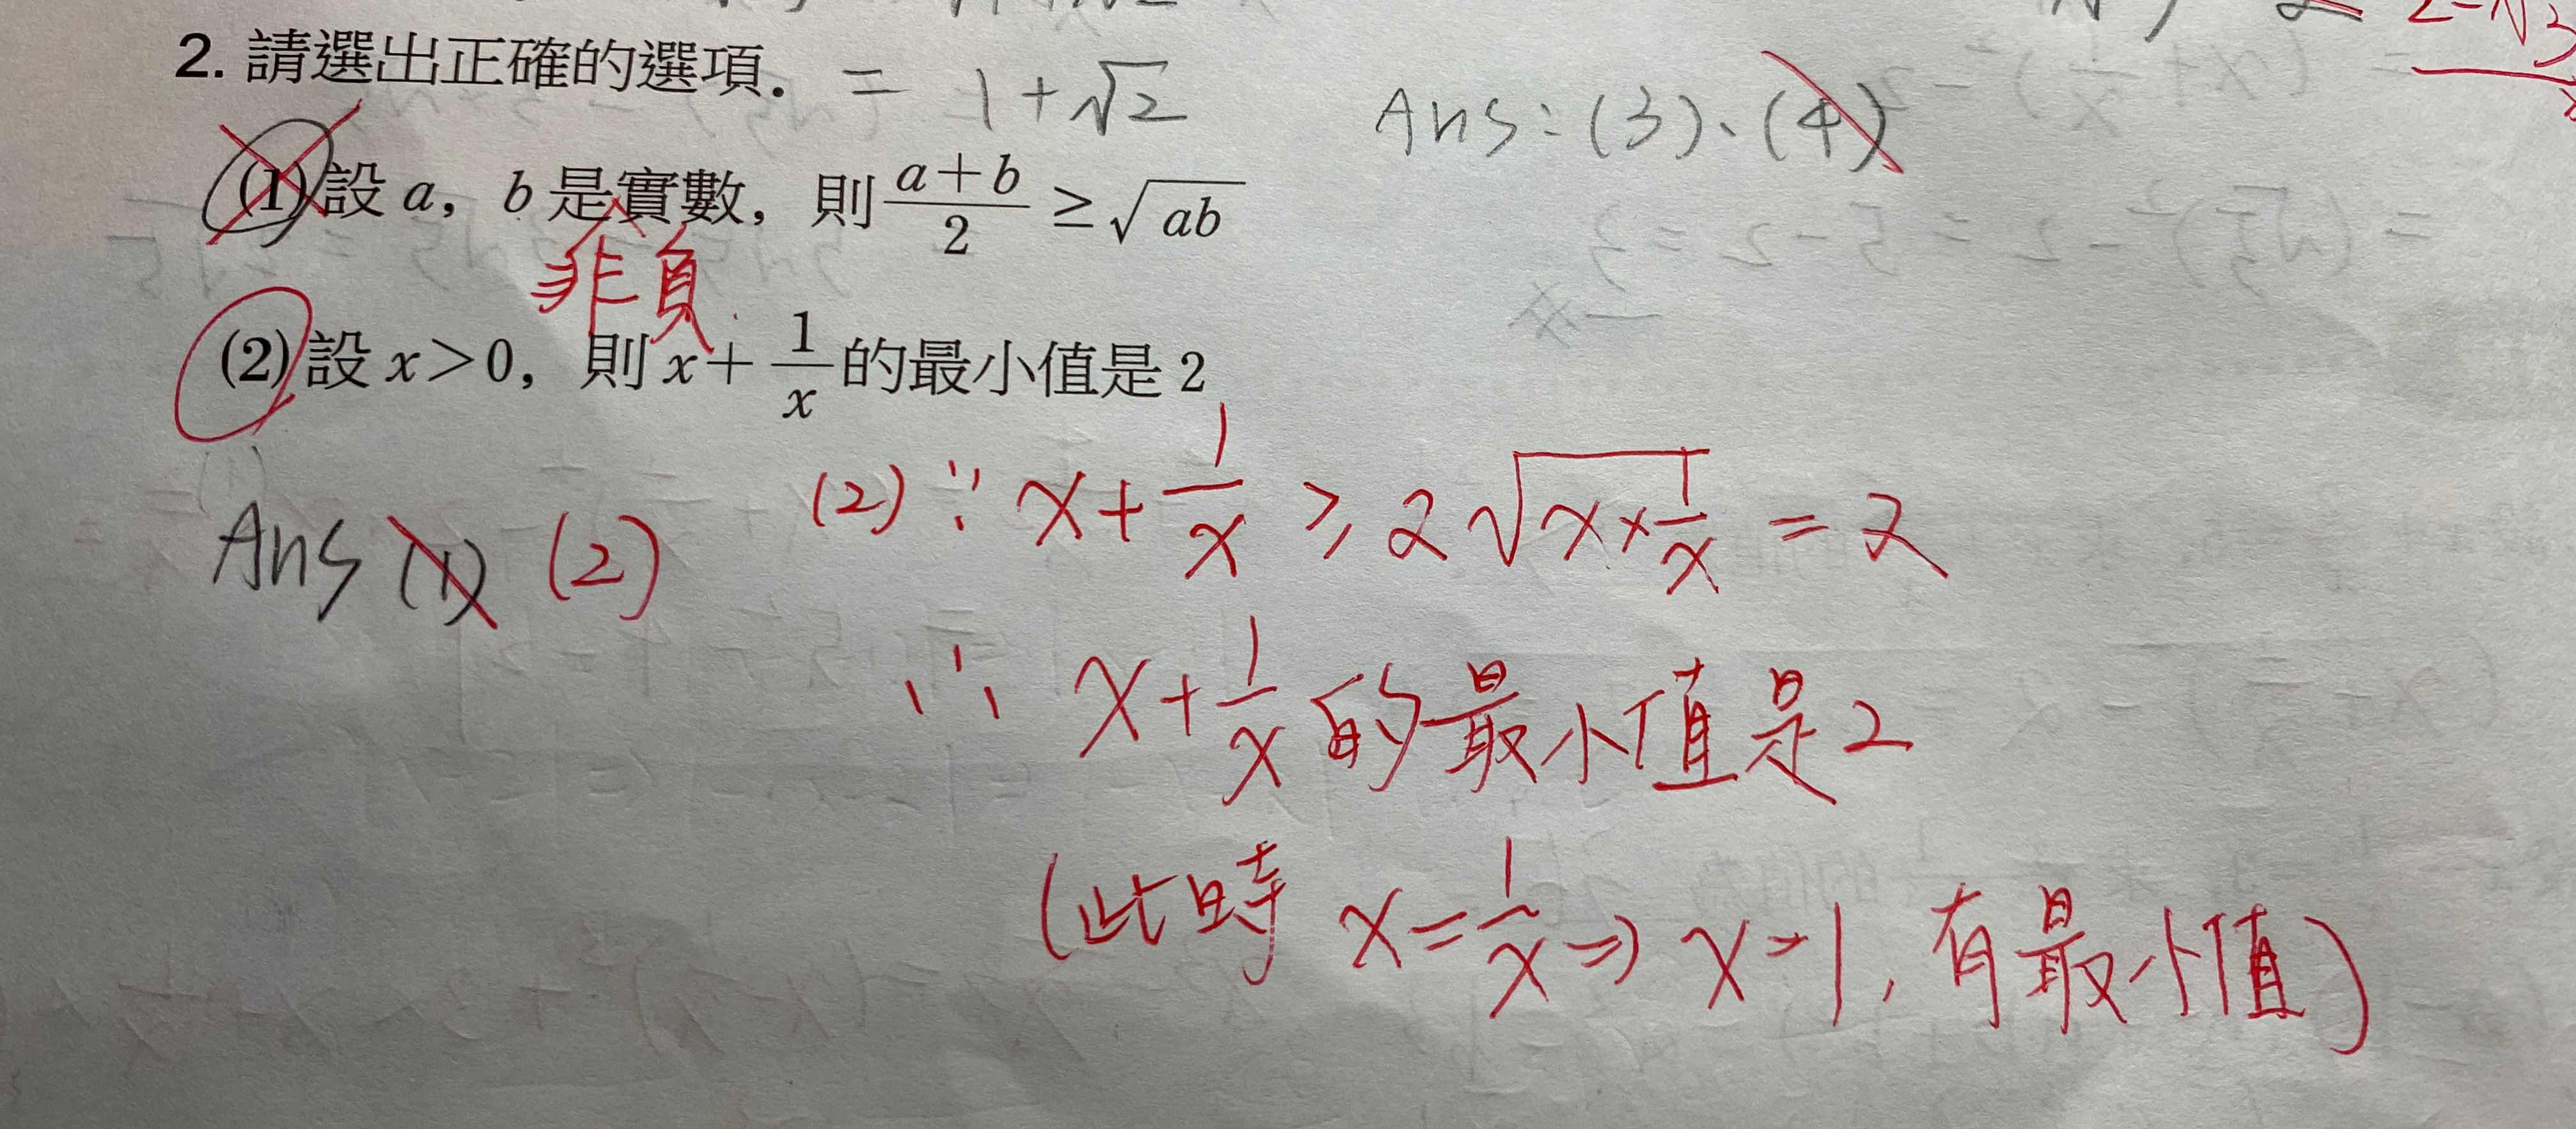 2. 請選出正確的選項.
= 1+√2
Ans: (3)、(4)
(1) 設 a, b 是實數, 則 (a+b)/2 ≥ √ab
非負
(2) 設 x>0, 則 x+1/x 的最小值是 2
Ans (1) (2)
(2) ∵ x+1/x ≥ 2√(x×1/x) = 2
∴ x+1/x 的最小值是2
(此時 x=1/x ⇒ x=1, 有最小值)